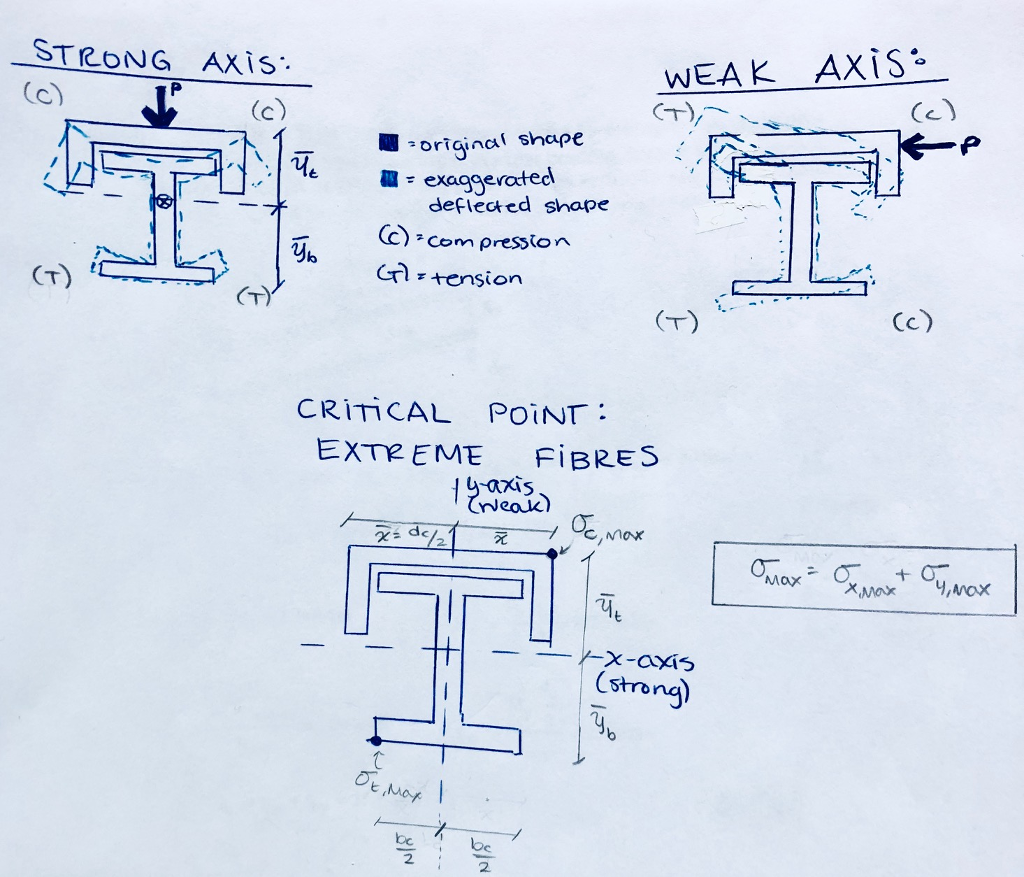 STRONG AXIS:
(C)
P
(C)
ȳt
ȳb
(T)
(T)
= original shape
= exaggerated
deflected shape
(C) = compression
(T) = tension
WEAK AXIS:
(T)
(C)
P
(T)
(C)
CRITICAL POINT:
EXTREME FIBRES
y-axis
(weak)
x̄ = dc/2
x̄
σc,max
ȳt
x-axis
(strong)
ȳb
σt,max
bc/2
bc/2
σmax = σx,max + σy,max